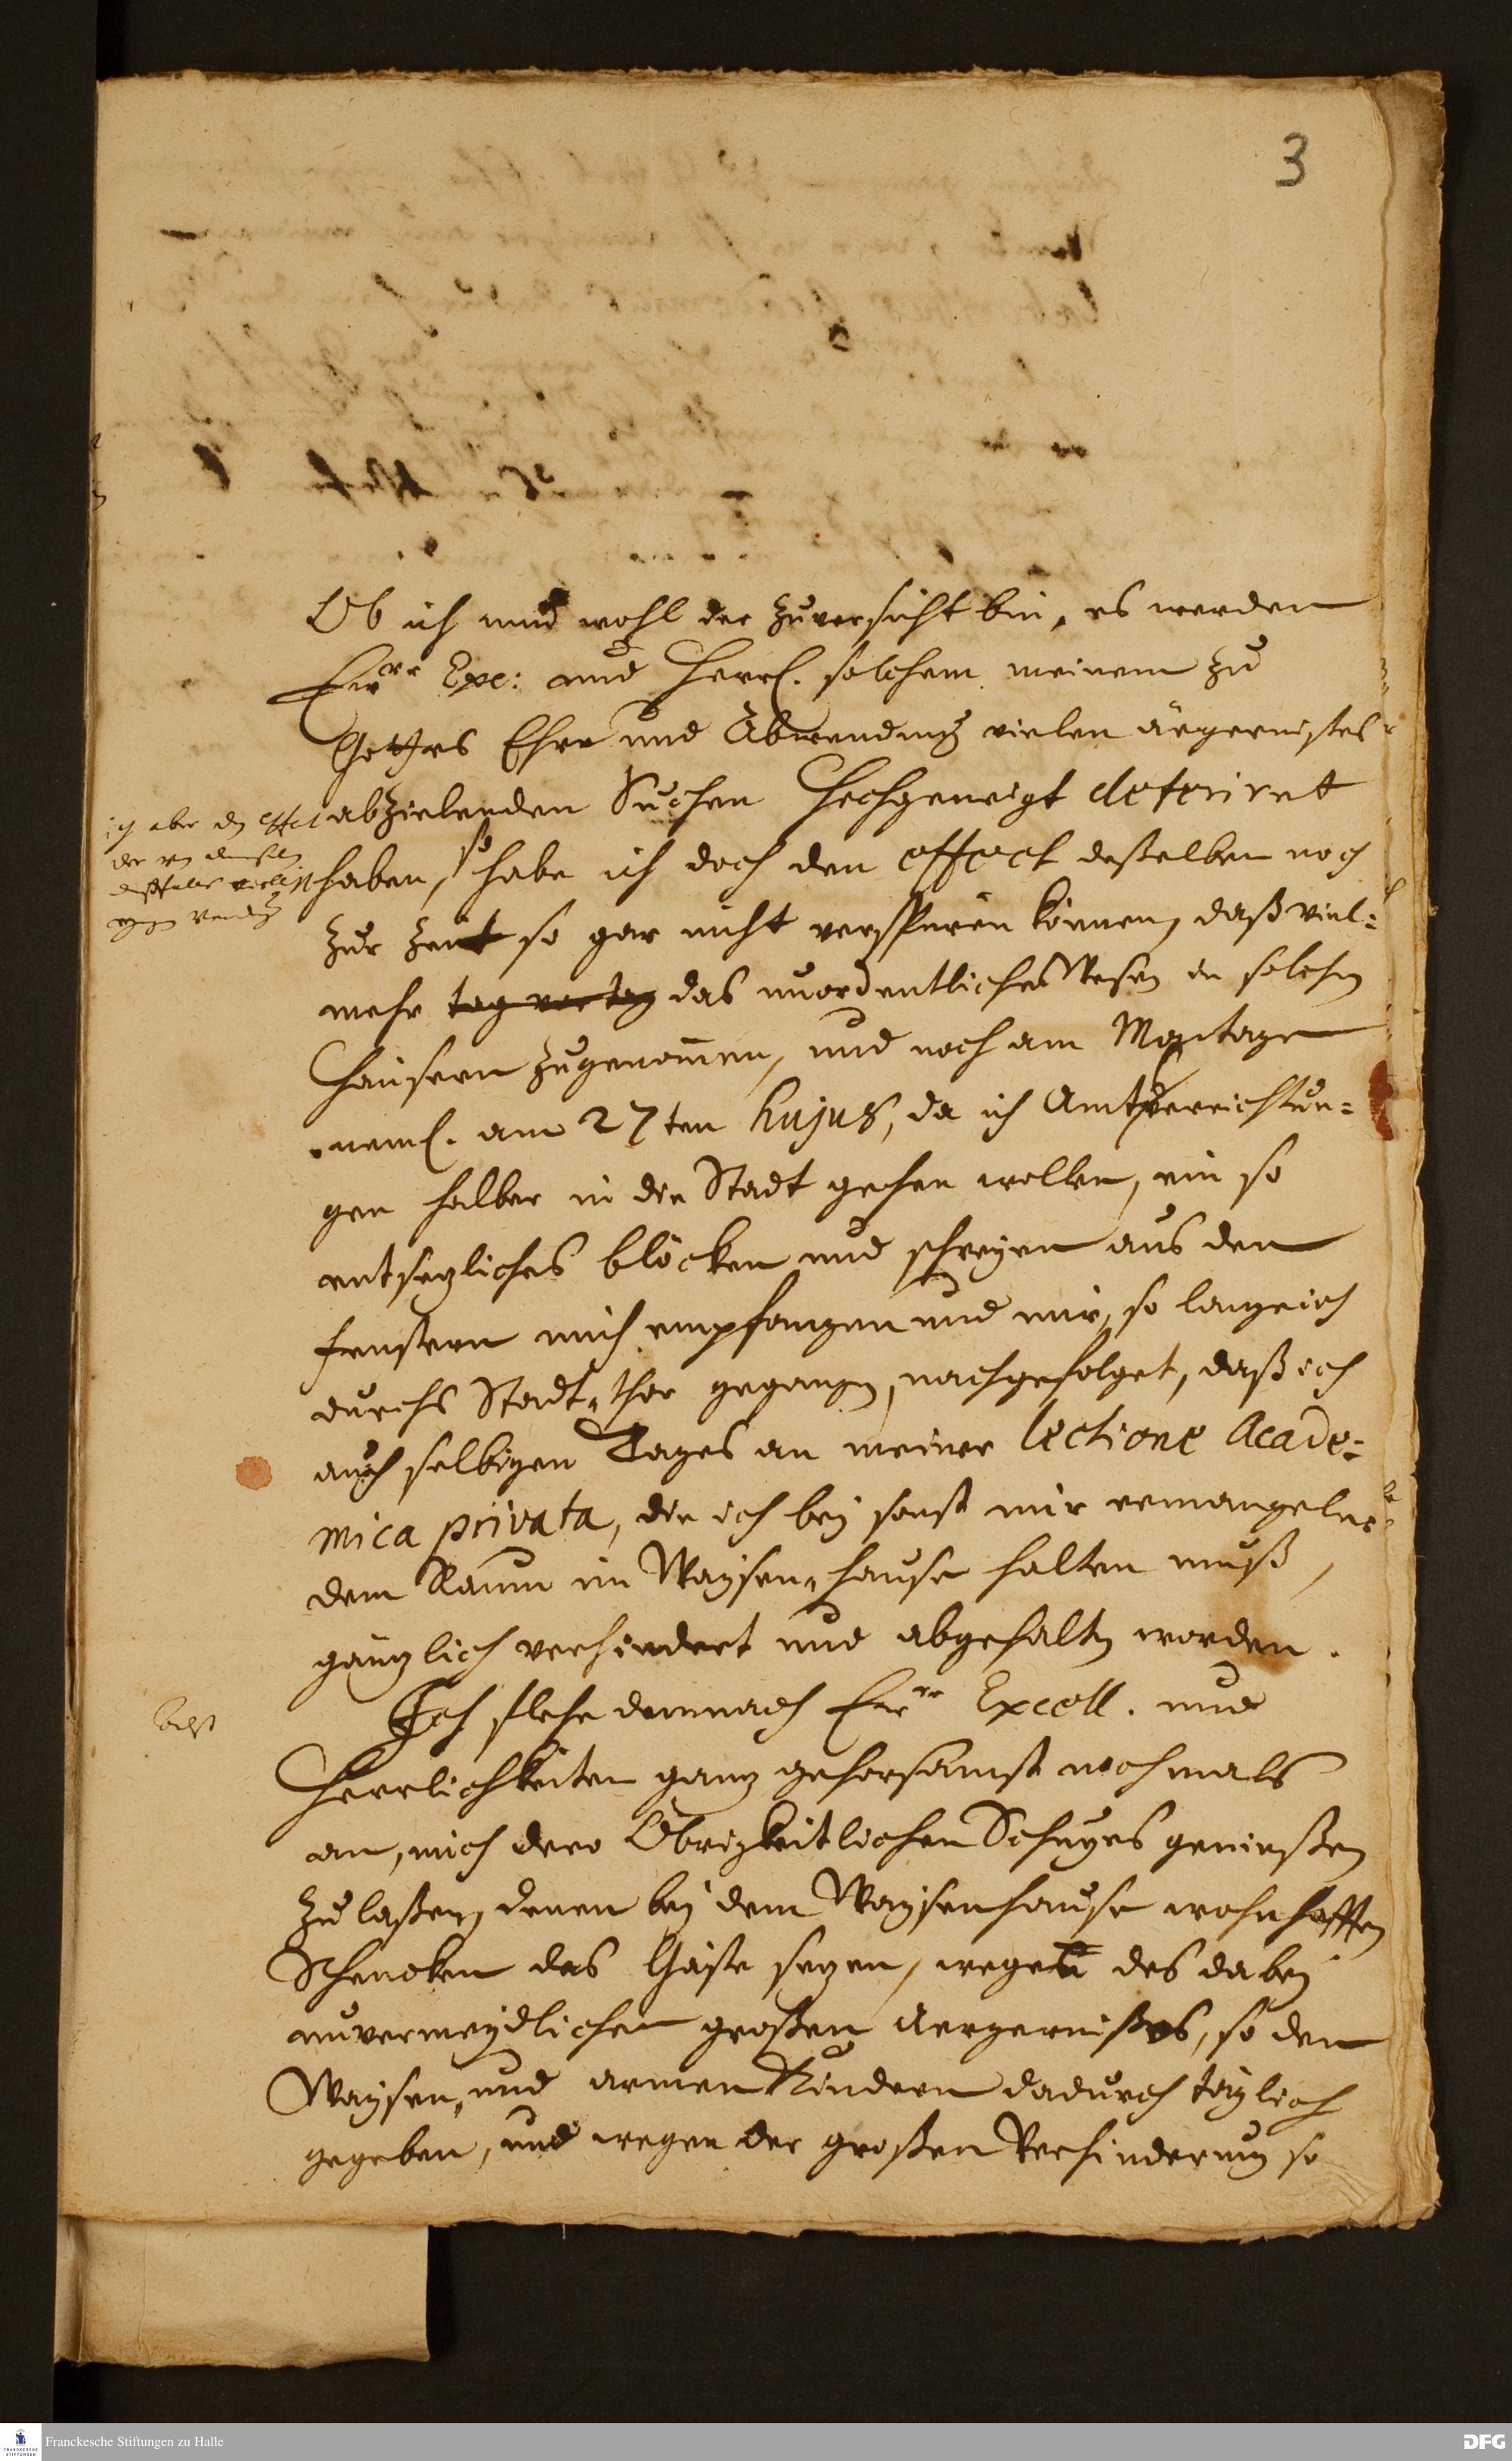 3
Ob ich nun wohl der zuversicht bin, es werden
Ewrr Exc: und Herrl. solchem meinem zu
Gottes Ehre und Abwendung vielen ärgernißes
abzielenden Suchen Hochgeneigt deferiret
haben, so habe ich doch den effect deßelben noch
zur Zeit so gar nicht verspüren können, daß viel=
mehr tag vor tag das unordentliches Wesen in solchen
Häusern zugenom̃en, und noch am Montage
neml. am 27ten hujus, da ich Amtsverrichtun=
gen halber in die Stadt gehen wollen, ein so
entsezliches blöcken und schreyen aus den
fenstern mich empfangen und mir, so lange ich
durchs Stadt-thor gegangen, nachgefolget, daß ich
auch selbigen Tages an meiner lectione Acade=
mica privata, die ich bey sonst mir ermangeln
dem Raum im Waysen-hause halten muß,
gänzlich verhindert und abgehalten worden.
Ich flehe demnach Ewrr Excell. und
Herrlichkeiten ganz gehorsamst nochmals
an, mich dero Obrigkeitlichen Schuzes genießen
zu laßen, denen bey dem Waysenhause wohnhafften
Schencken das Gäste sezen, wegen des dabey
unvermeydlichen großen Aergernißes, so den
Waysen- und armen Kindern dadurch täglich
gegeben, und wegen der großen Verhinderung so
ich aber den effect
Franckesche Stiftungen zu Halle
DFG